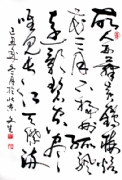 故人西辞黄鹤楼烟
花三月下扬州孤帆
远影碧空尽
唯见长江天际流